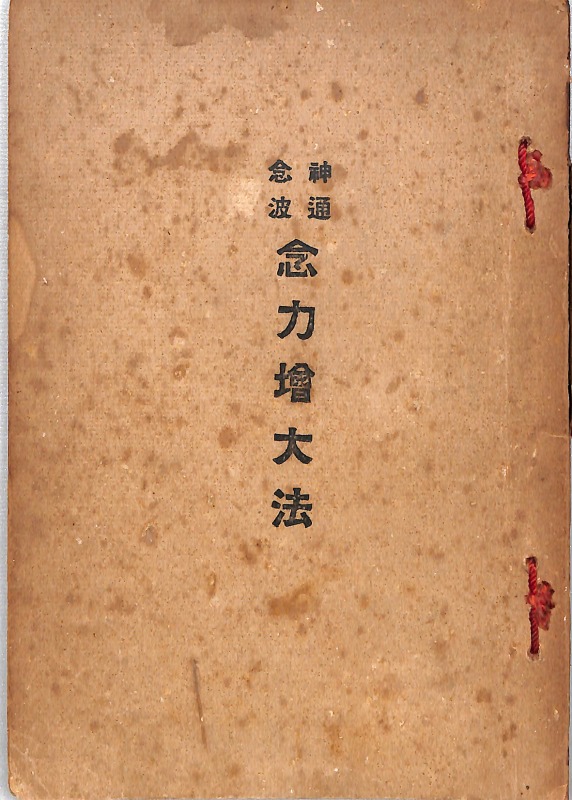 神通
念波
念力增大法